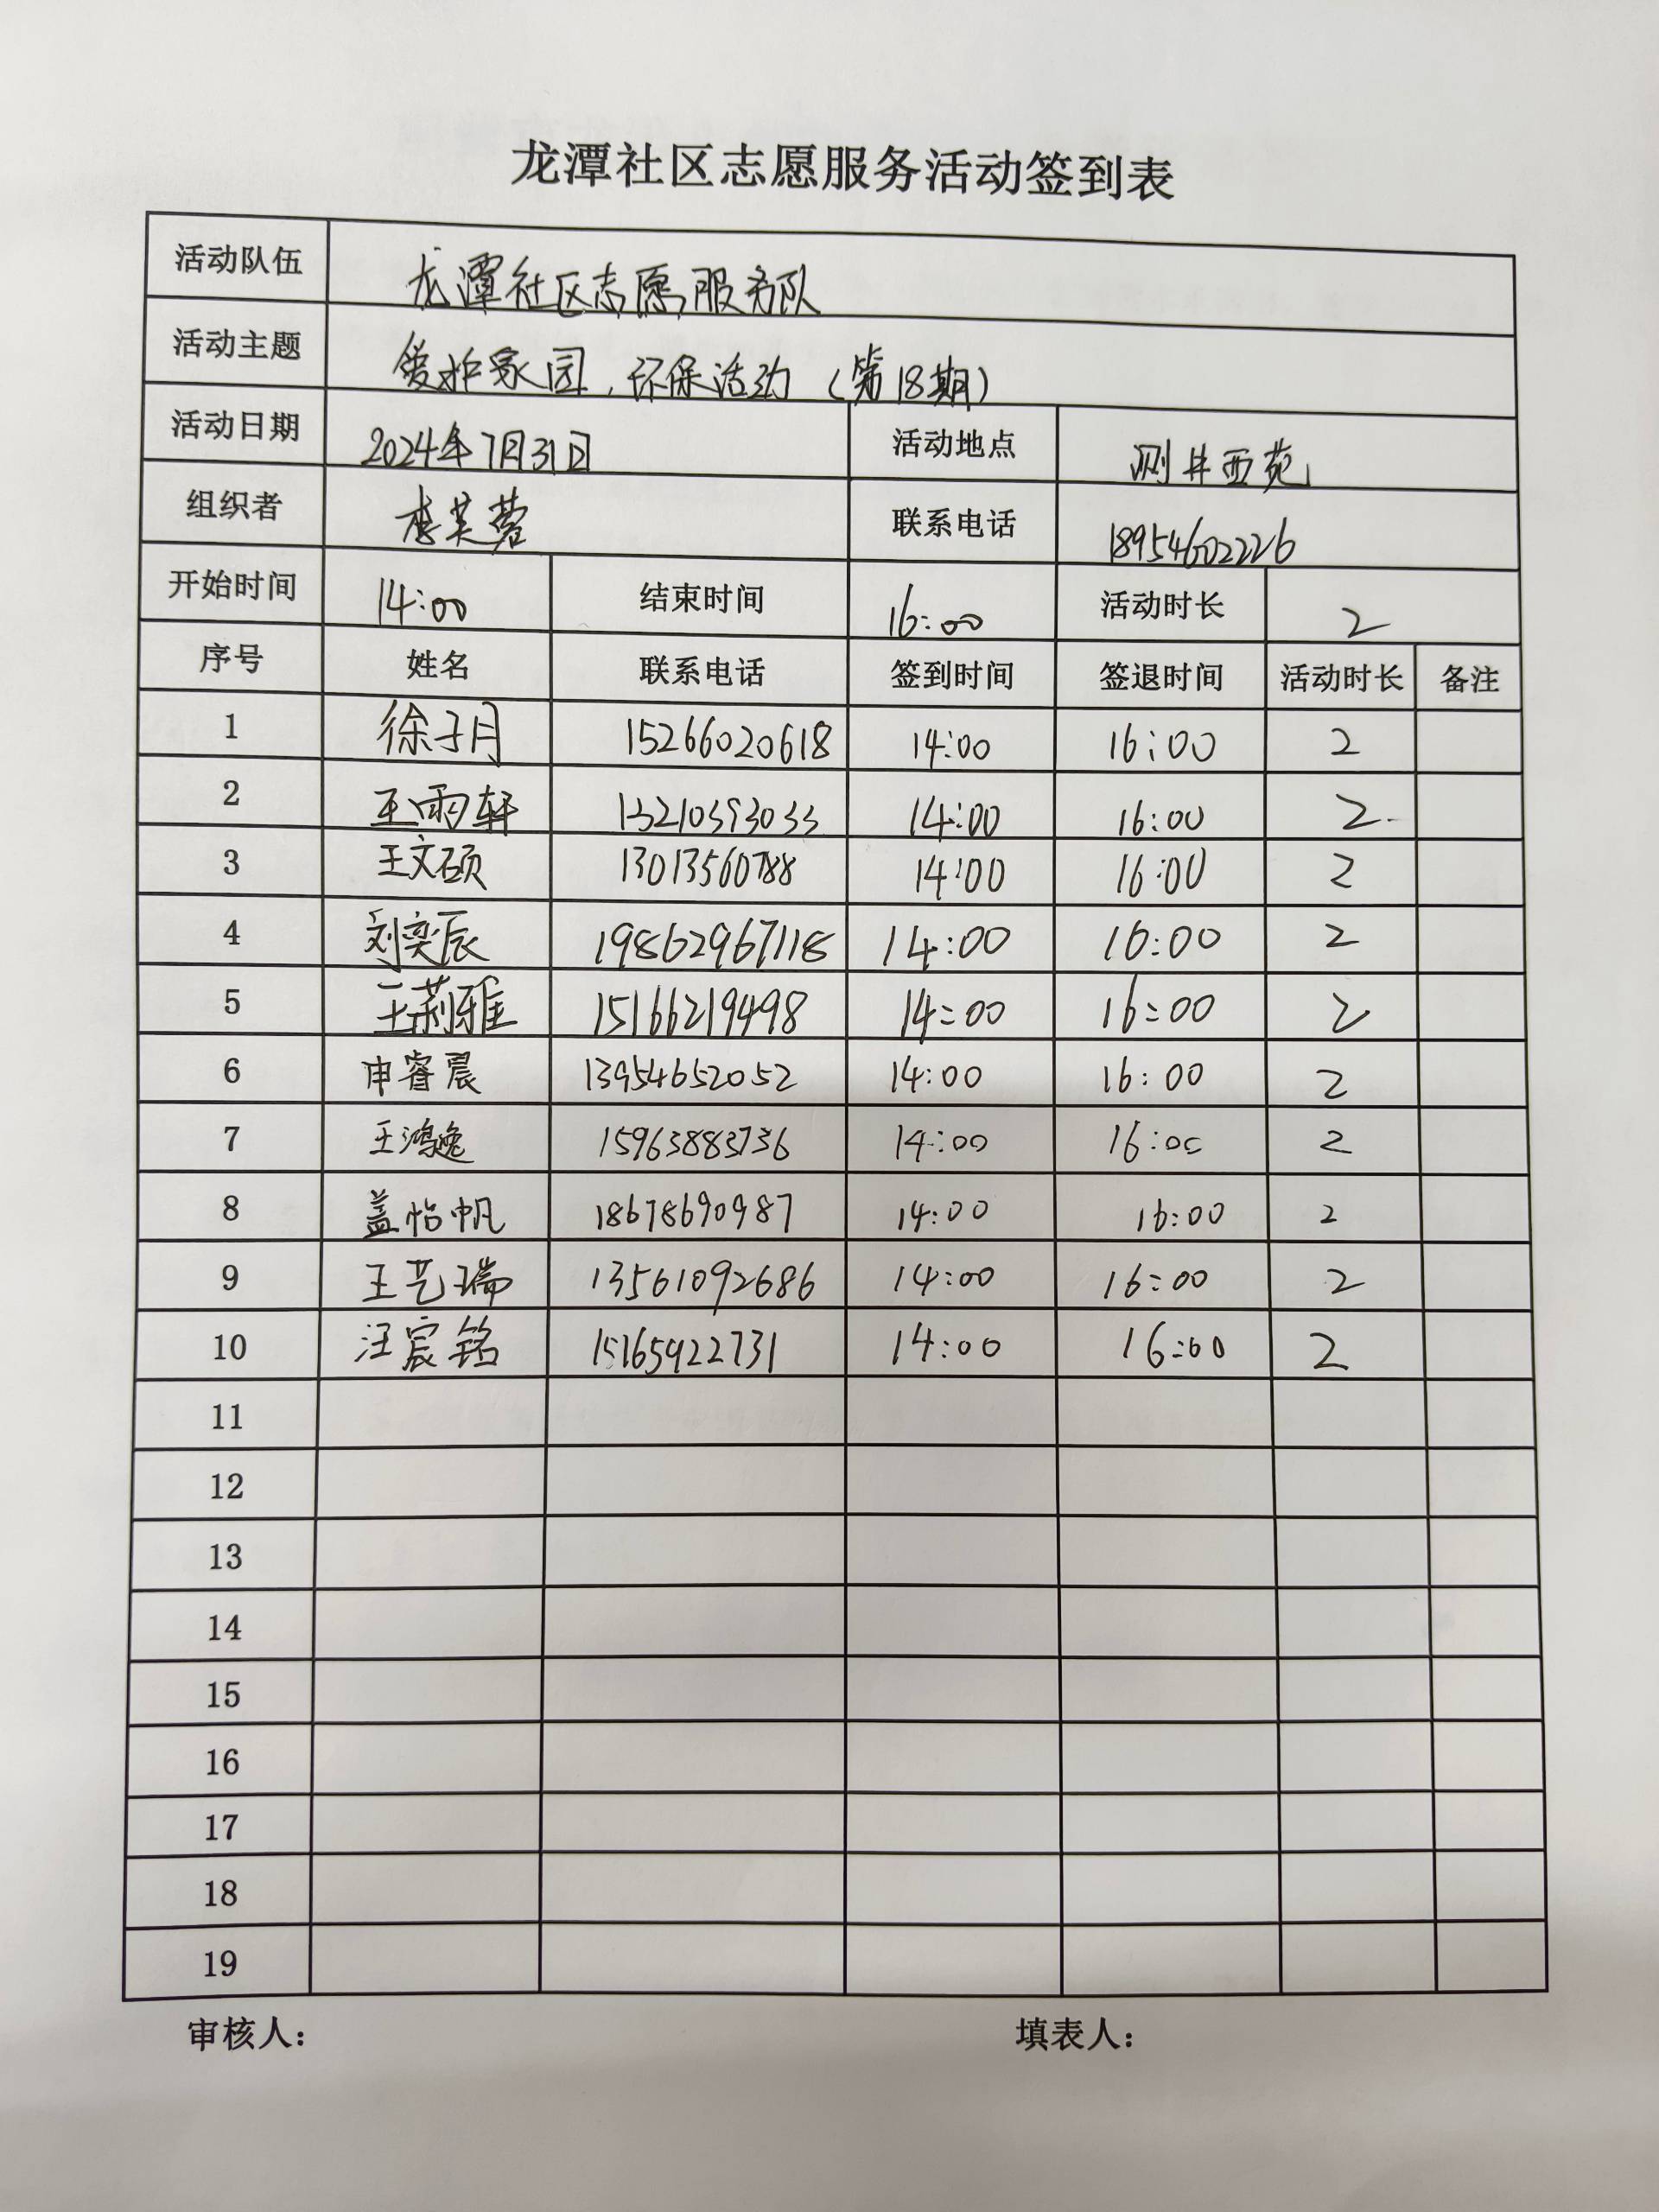 龙潭社区志愿服务活动签到表
活动队伍 龙潭社区志愿服务队
活动主题 爱护家园,环保活动(第18期)
活动日期 2024年7月31日 活动地点 测井西苑
组织者 李芙蓉 联系电话 18954602226
开始时间 14:00 结束时间 16:00 活动时长 2
序号 姓名 联系电话 签到时间 签退时间 活动时长 备注
1 徐子月 15266020618 14:00 16:00 2
2 王雨轩 13210393033 14:00 16:00 2
3 王文硕 13013560788 14:00 16:00 2
4 刘奕辰 19862967118 14:00 16:00 2
5 王莉雅 15166219498 14:00 16:00 2
6 申睿晨 13954652052 14:00 16:00 2
7 王鸿逸 15963883736 14:00 16:00 2
8 盖怡帆 18678690987 14:00 16:00 2
9 王艺瑞 13561092686 14:00 16:00 2
10 汪宸铭 15165922731 14:00 16:00 2
11
12
13
14
15
16
17
18
19
审核人: 填表人: